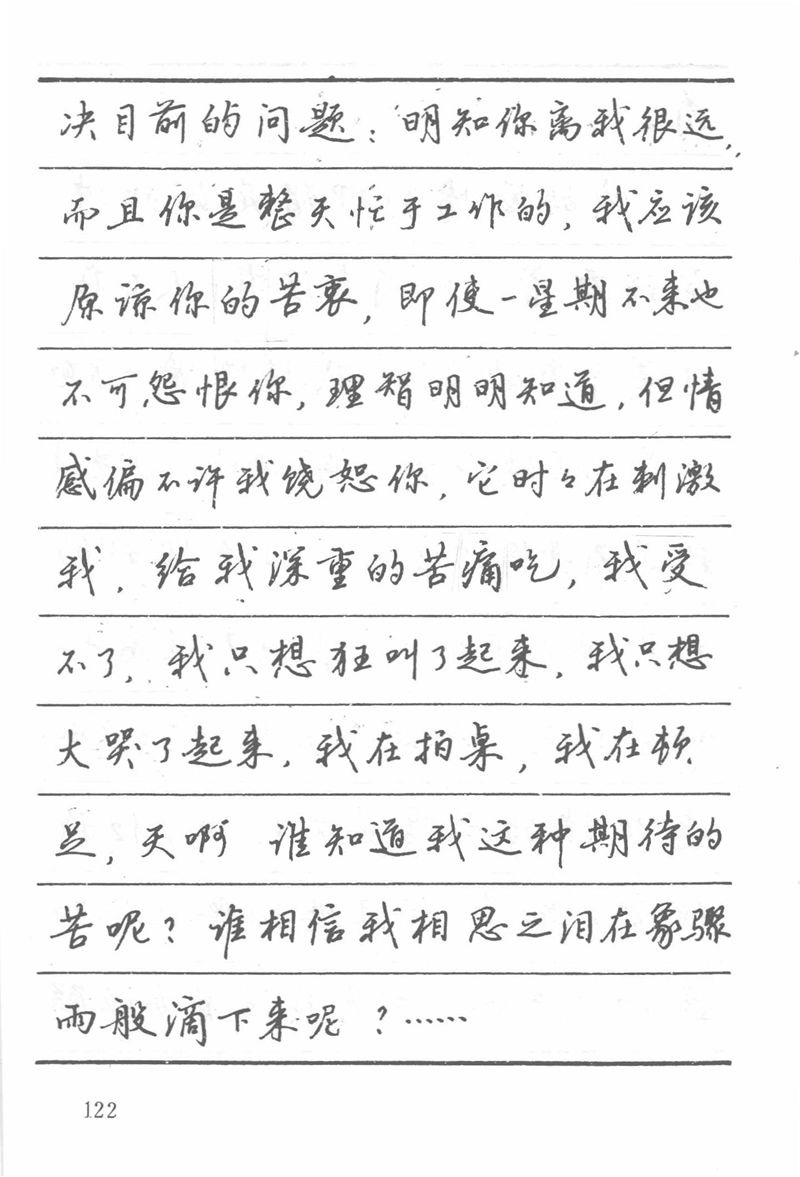 决目前的问题：明知你离我很远，
而且你是整天忙于工作的，我应该
原谅你的苦衷，即使一星期不来也
不可怨恨你，理智明明知道，但情
感偏不许我饶恕你，它时々在刺激
我，给我深重的苦痛吃，我受
不了，我只想狂叫了起来，我只想
大哭了起来，我在拍桌，我在顿
足，天啊 谁知道我这种期待的
苦呢？谁相信我相思之泪在象骤
雨般滴下来呢？……
122